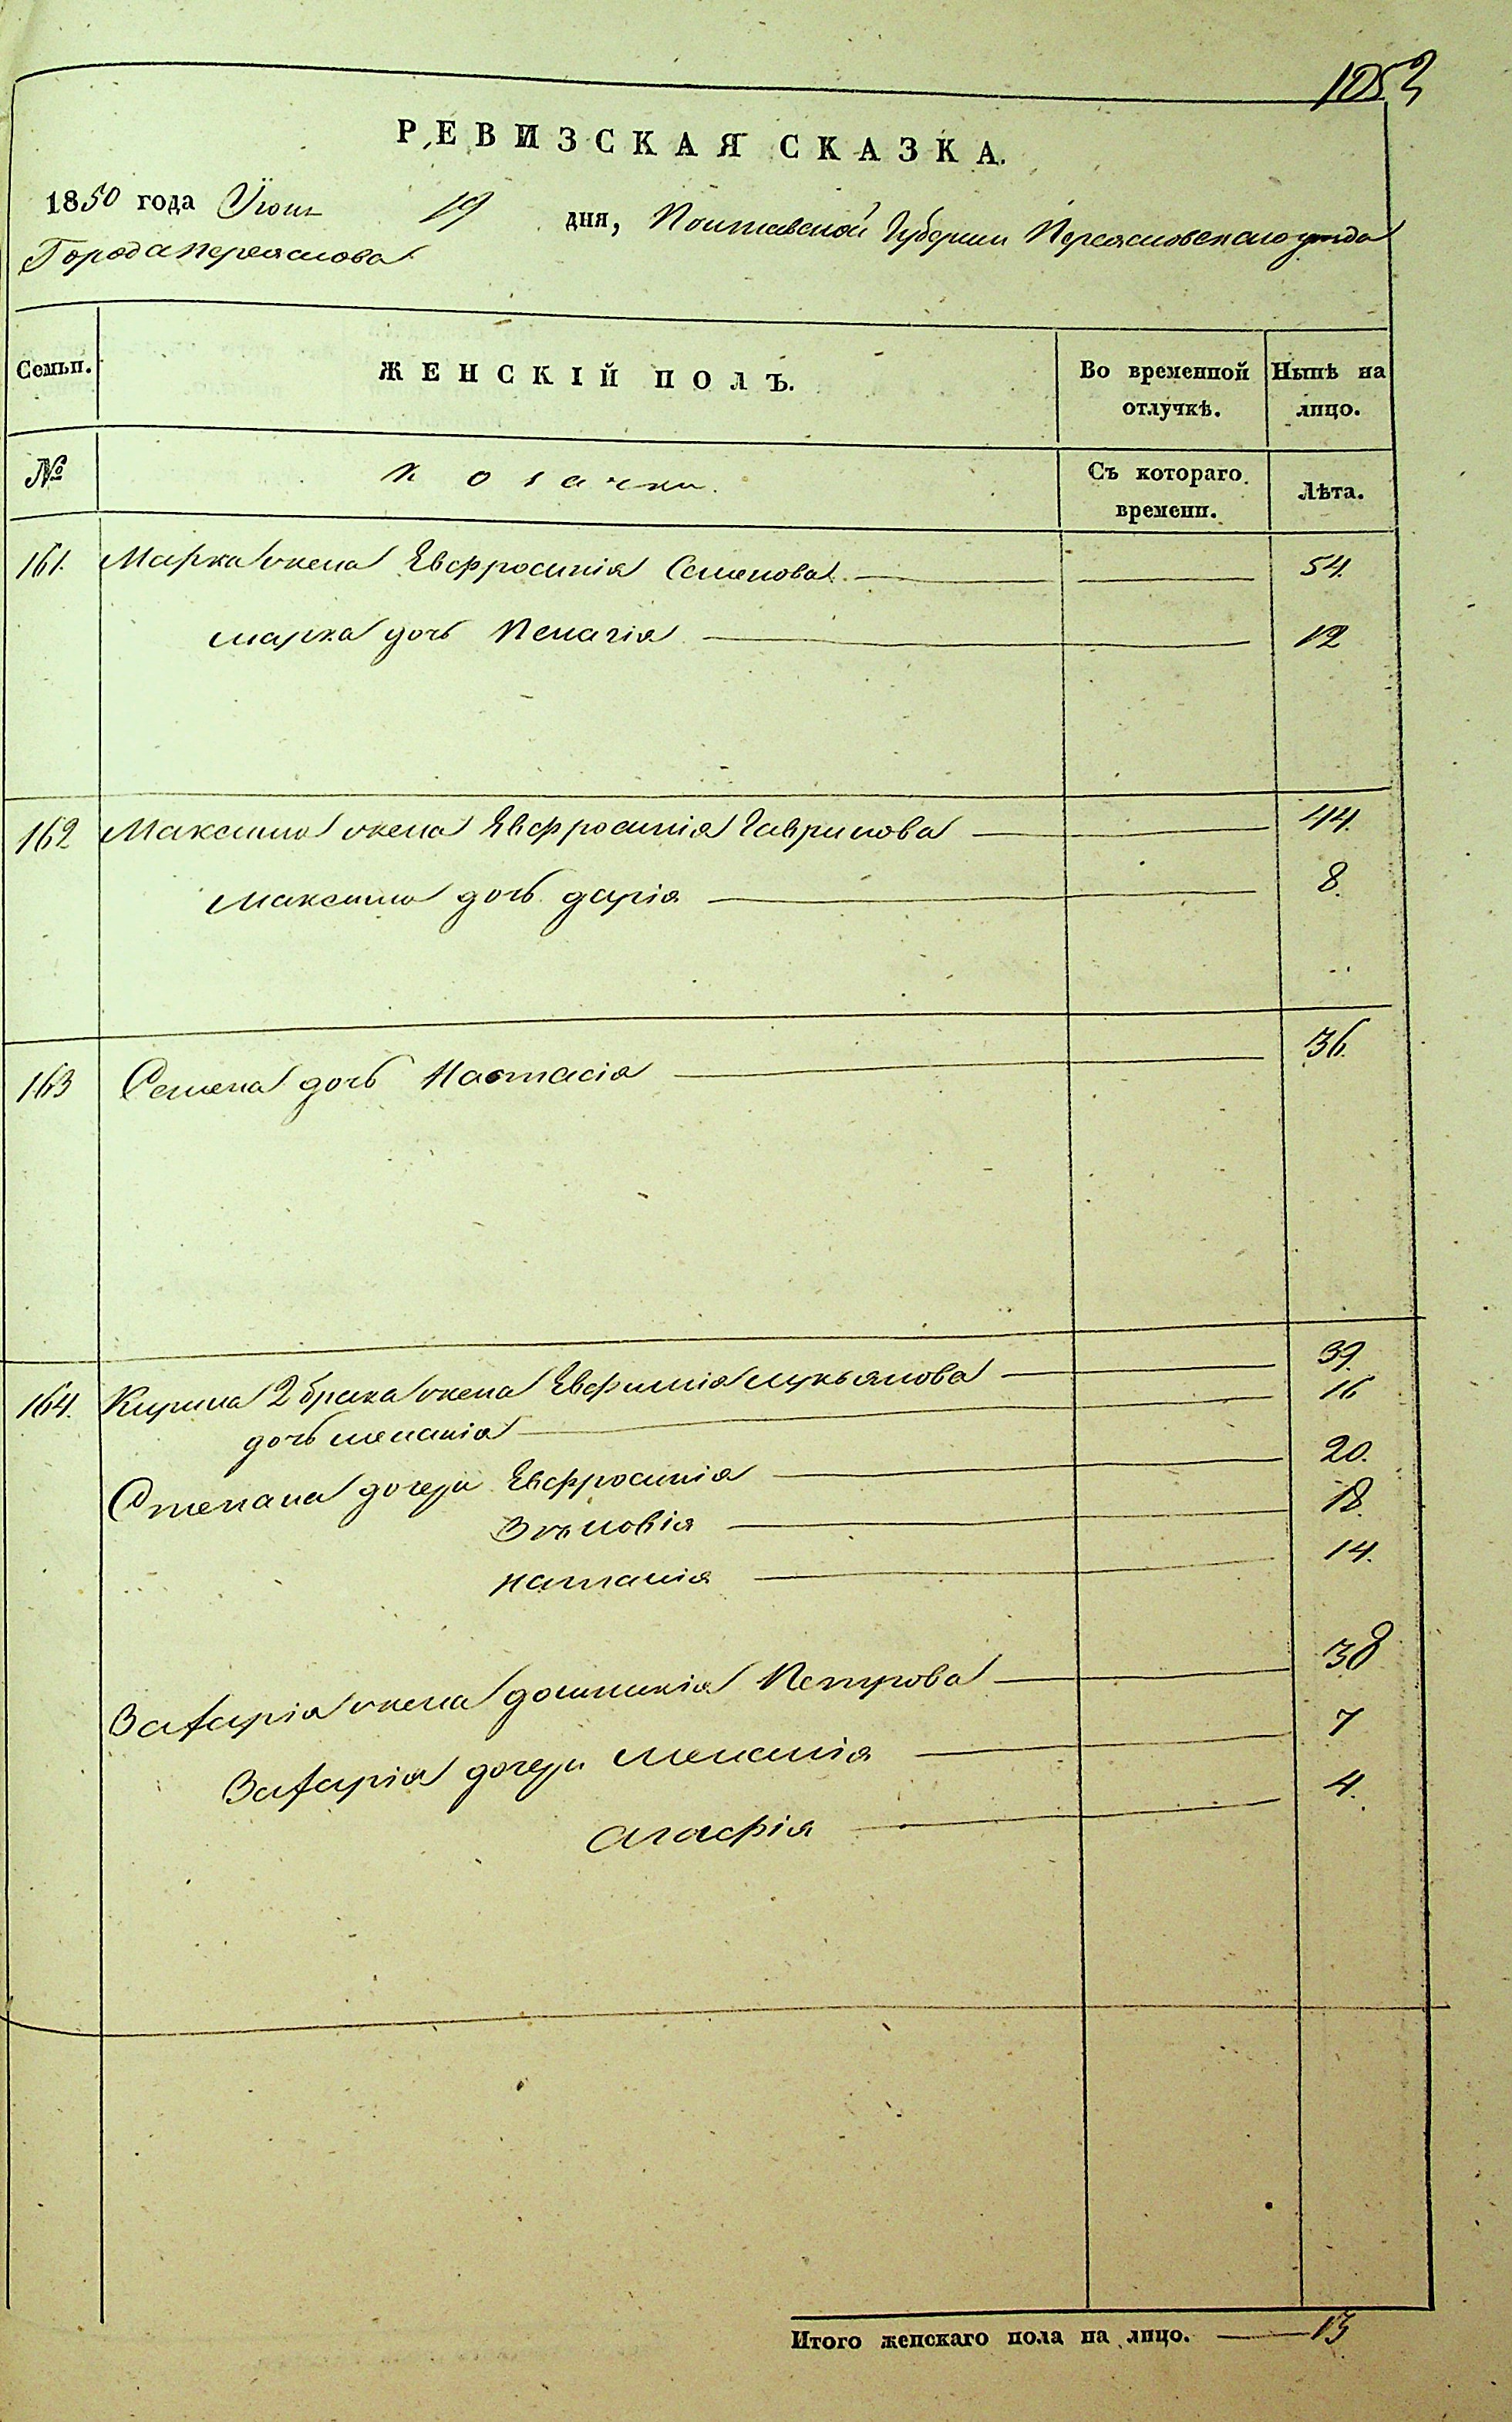 1053
РЕВИЗСКАЯ СКАЗКА.
1850 года Іюня 19 дня, Полтавской Губернии Переясловского уезда
Города Переяслова
Семьи. ЖЕНСКІЙ ПОЛЪ. Во временной отлучкѣ. Нынѣ на лицо.
№ Козачки. Съ котораго времени. Лѣта.
161. Марка жена Евфросинія Семенова 54.
Марка дочь Пелагія 12
162 Максима жена Евфросинія Гаврилова 44.
Максима дочь Дарія 8.
163 Семена дочь Настасія 36.
164. Кирила 2 брака жена Евфимія Лукьянова 39.
дочь Меланія 16
Степана дочери Евфросинія 20.
Зѣновія 18.
Наталія 14.
Захарія жена Домникія Петрова 38
Захарія дочери Меланія 7
Агафія 4.
Итого женскаго пола на лицо. 13